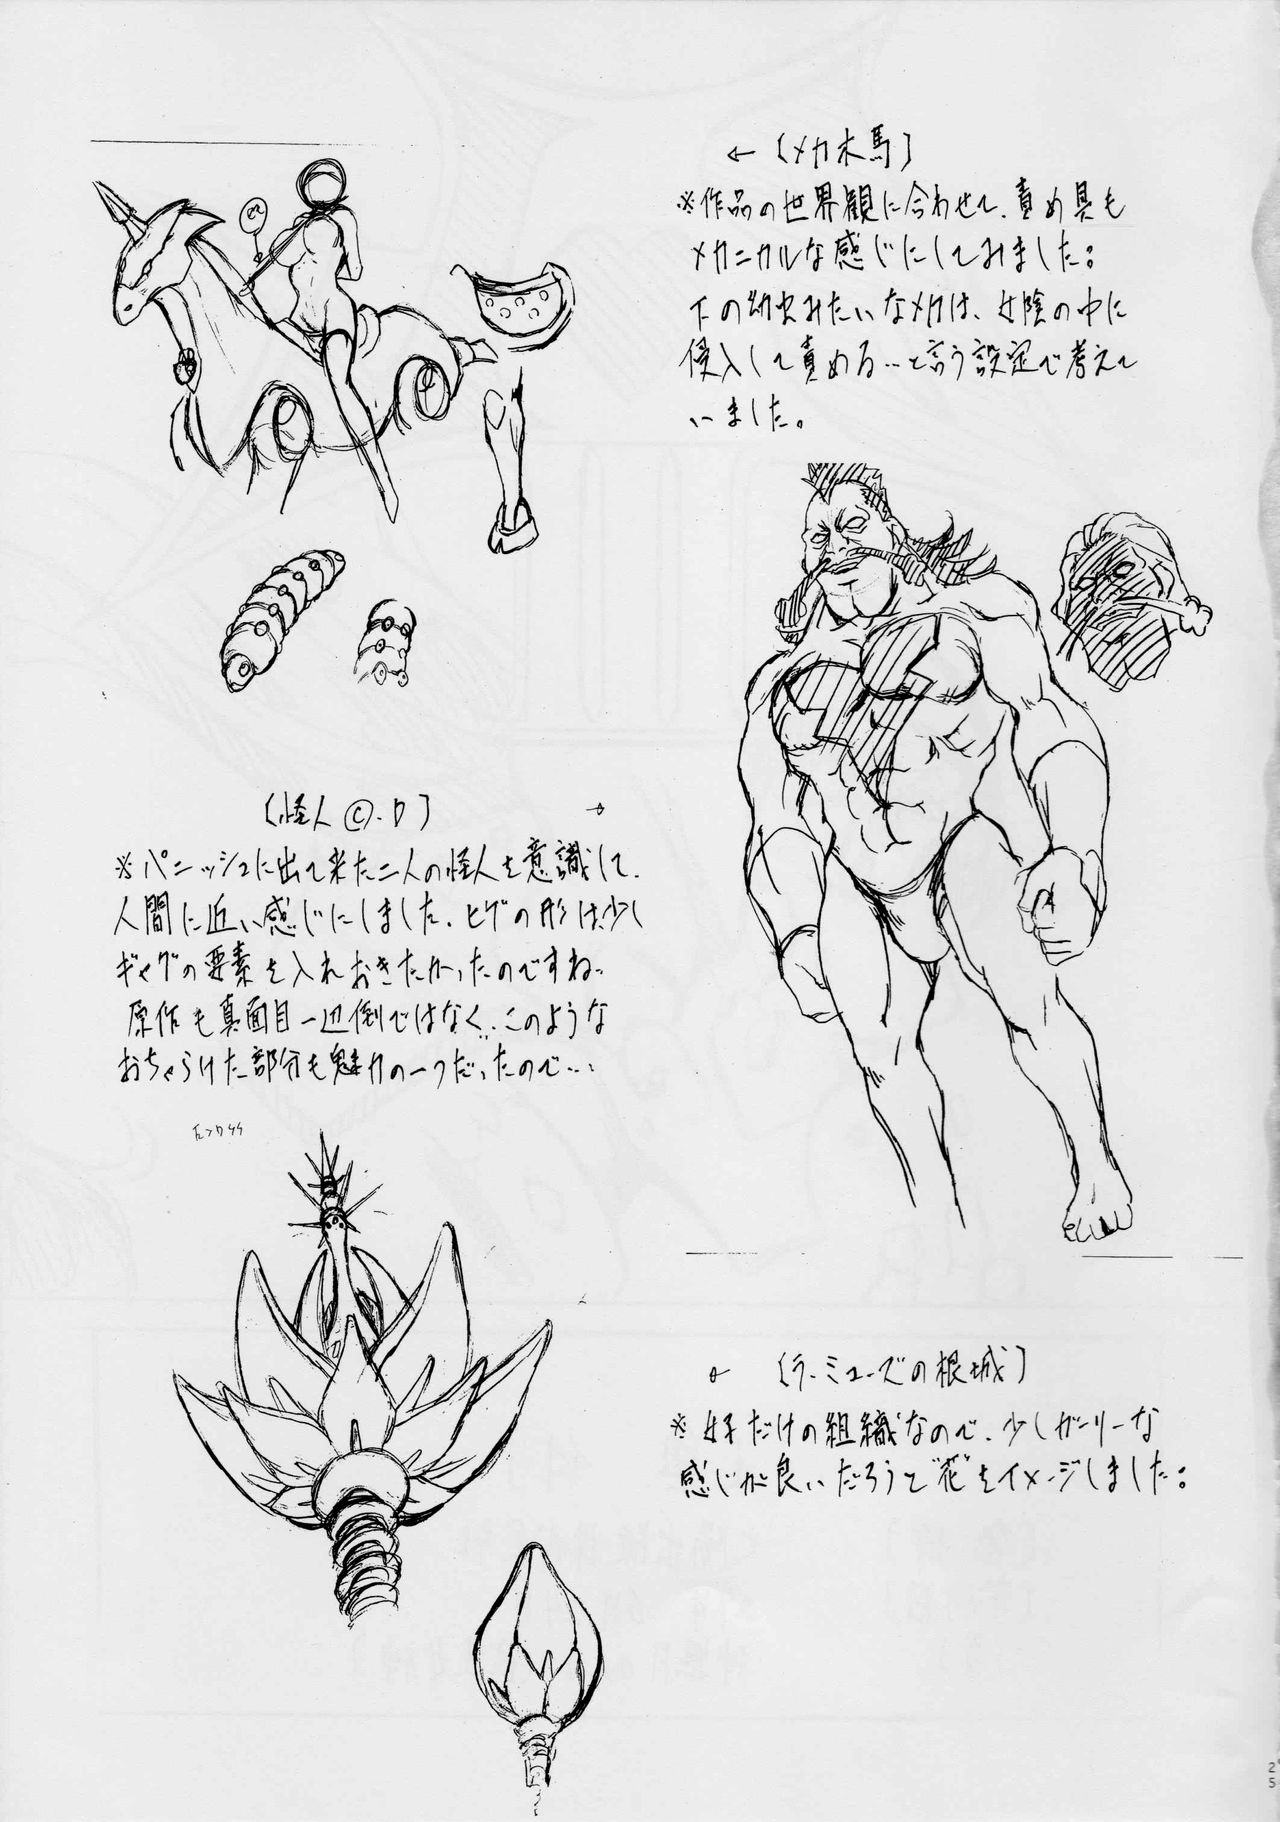 ← 〔メカ木馬〕
※作品の世界観に合わせて、責め具も
メカニカルな感じにしてみました。
下の幼虫みたいなメカは、女陰の中に
侵入して責める‥と言う設定で考えて
いました。
〔怪人©.D〕 →
※パニッシュに出て来た二人の怪人を意識して、
人間に近い感じにしました。ヒゲの形は、少し
ギャグの要素を入れおきたかったのですね‥
原作も真面目一辺倒ではなく、このような
おちゃらけた部分も魅力の一つだったので…
← 〔ラ・ミューズの根城〕
※ 女子だけの組織なので、少しガーリーな
感じが良いだろうと“花”をイメージしました。
25